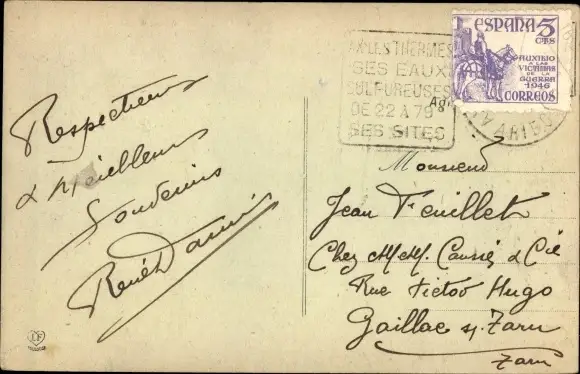 Respectueux
& Meilleurs
Souvenirs
AX-LES-THERMES
SES EAUX
SULFUREUSES
DE 22 A 79
SES SITES
ESPAÑA 5
CTS
AUXILIO
A LAS
VICTIMAS
DE LA
GUERRA
1946
CORREOS
Monsieur
Jean Feuillet
Chez MM. Caussé & Cie
Rue Victor Hugo
Gaillac s/ Tarn
Tarn